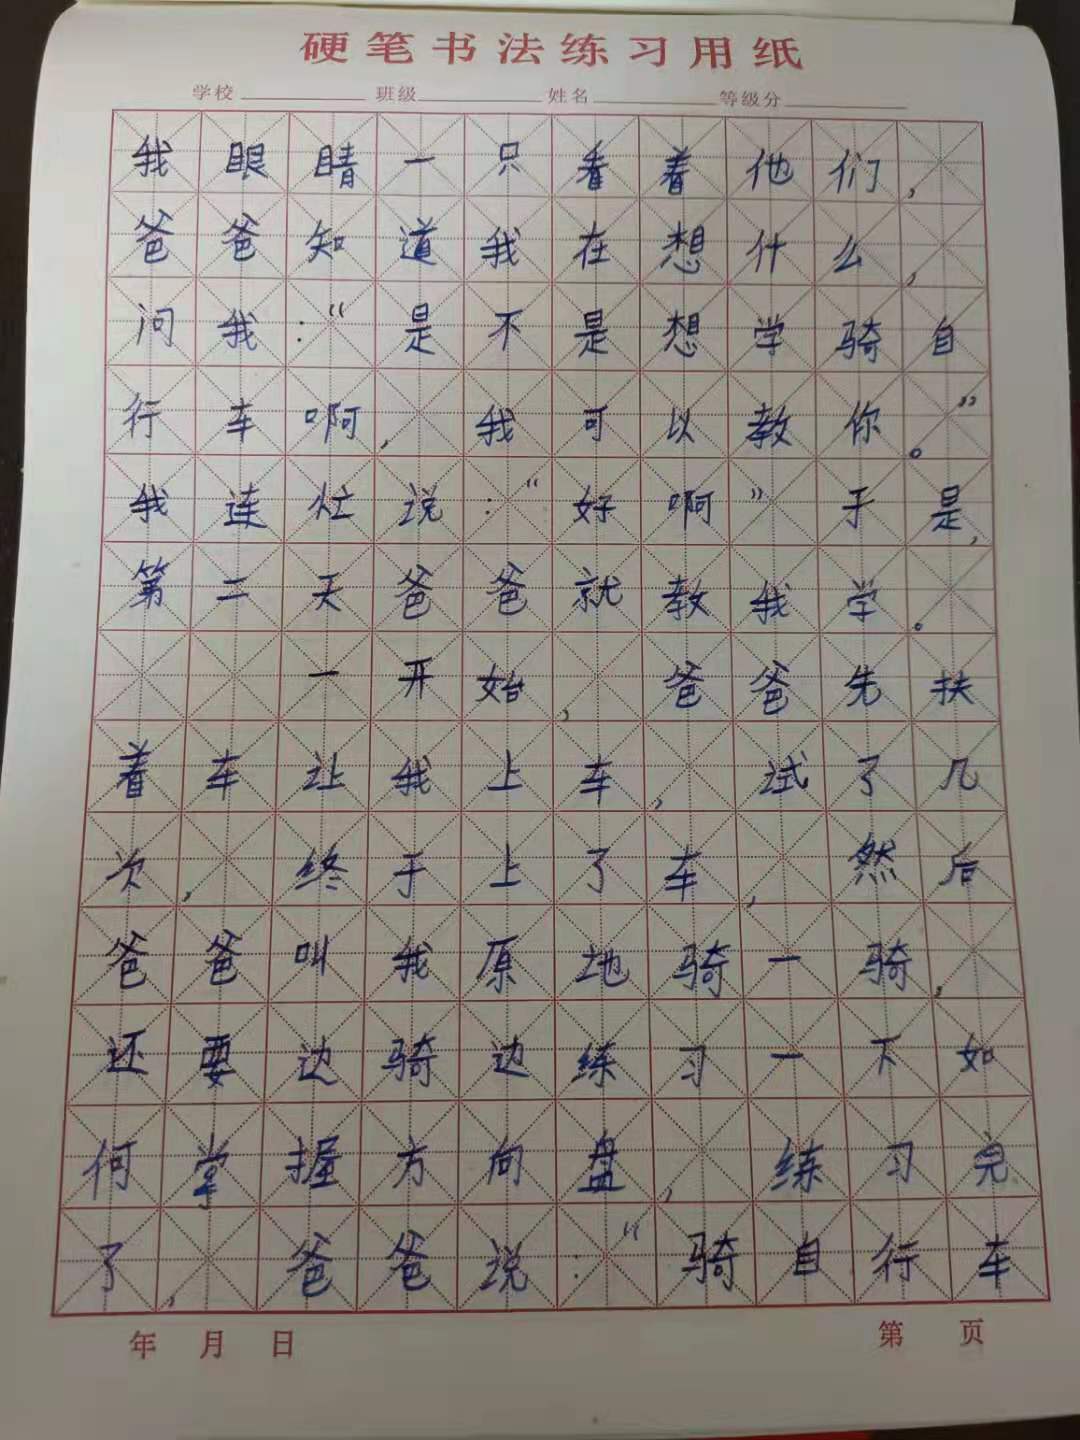 硬笔书法练习用纸
学校 班级 姓名 等级分
我眼睛一只看着他们，
爸爸知道我在想什么，
问我：“是不是想学骑自
行车啊，我可以教你。”
我连忙说：“好啊”于是，
第二天爸爸就教我学。
一开始，爸爸先扶
着车让我上车，试了几
次，终于上了车，然后
爸爸叫我原地骑一骑，
还要边骑边练习一下如
何掌握方向盘，练习完
了，爸爸说：“骑自行车
年 月 日 第 页